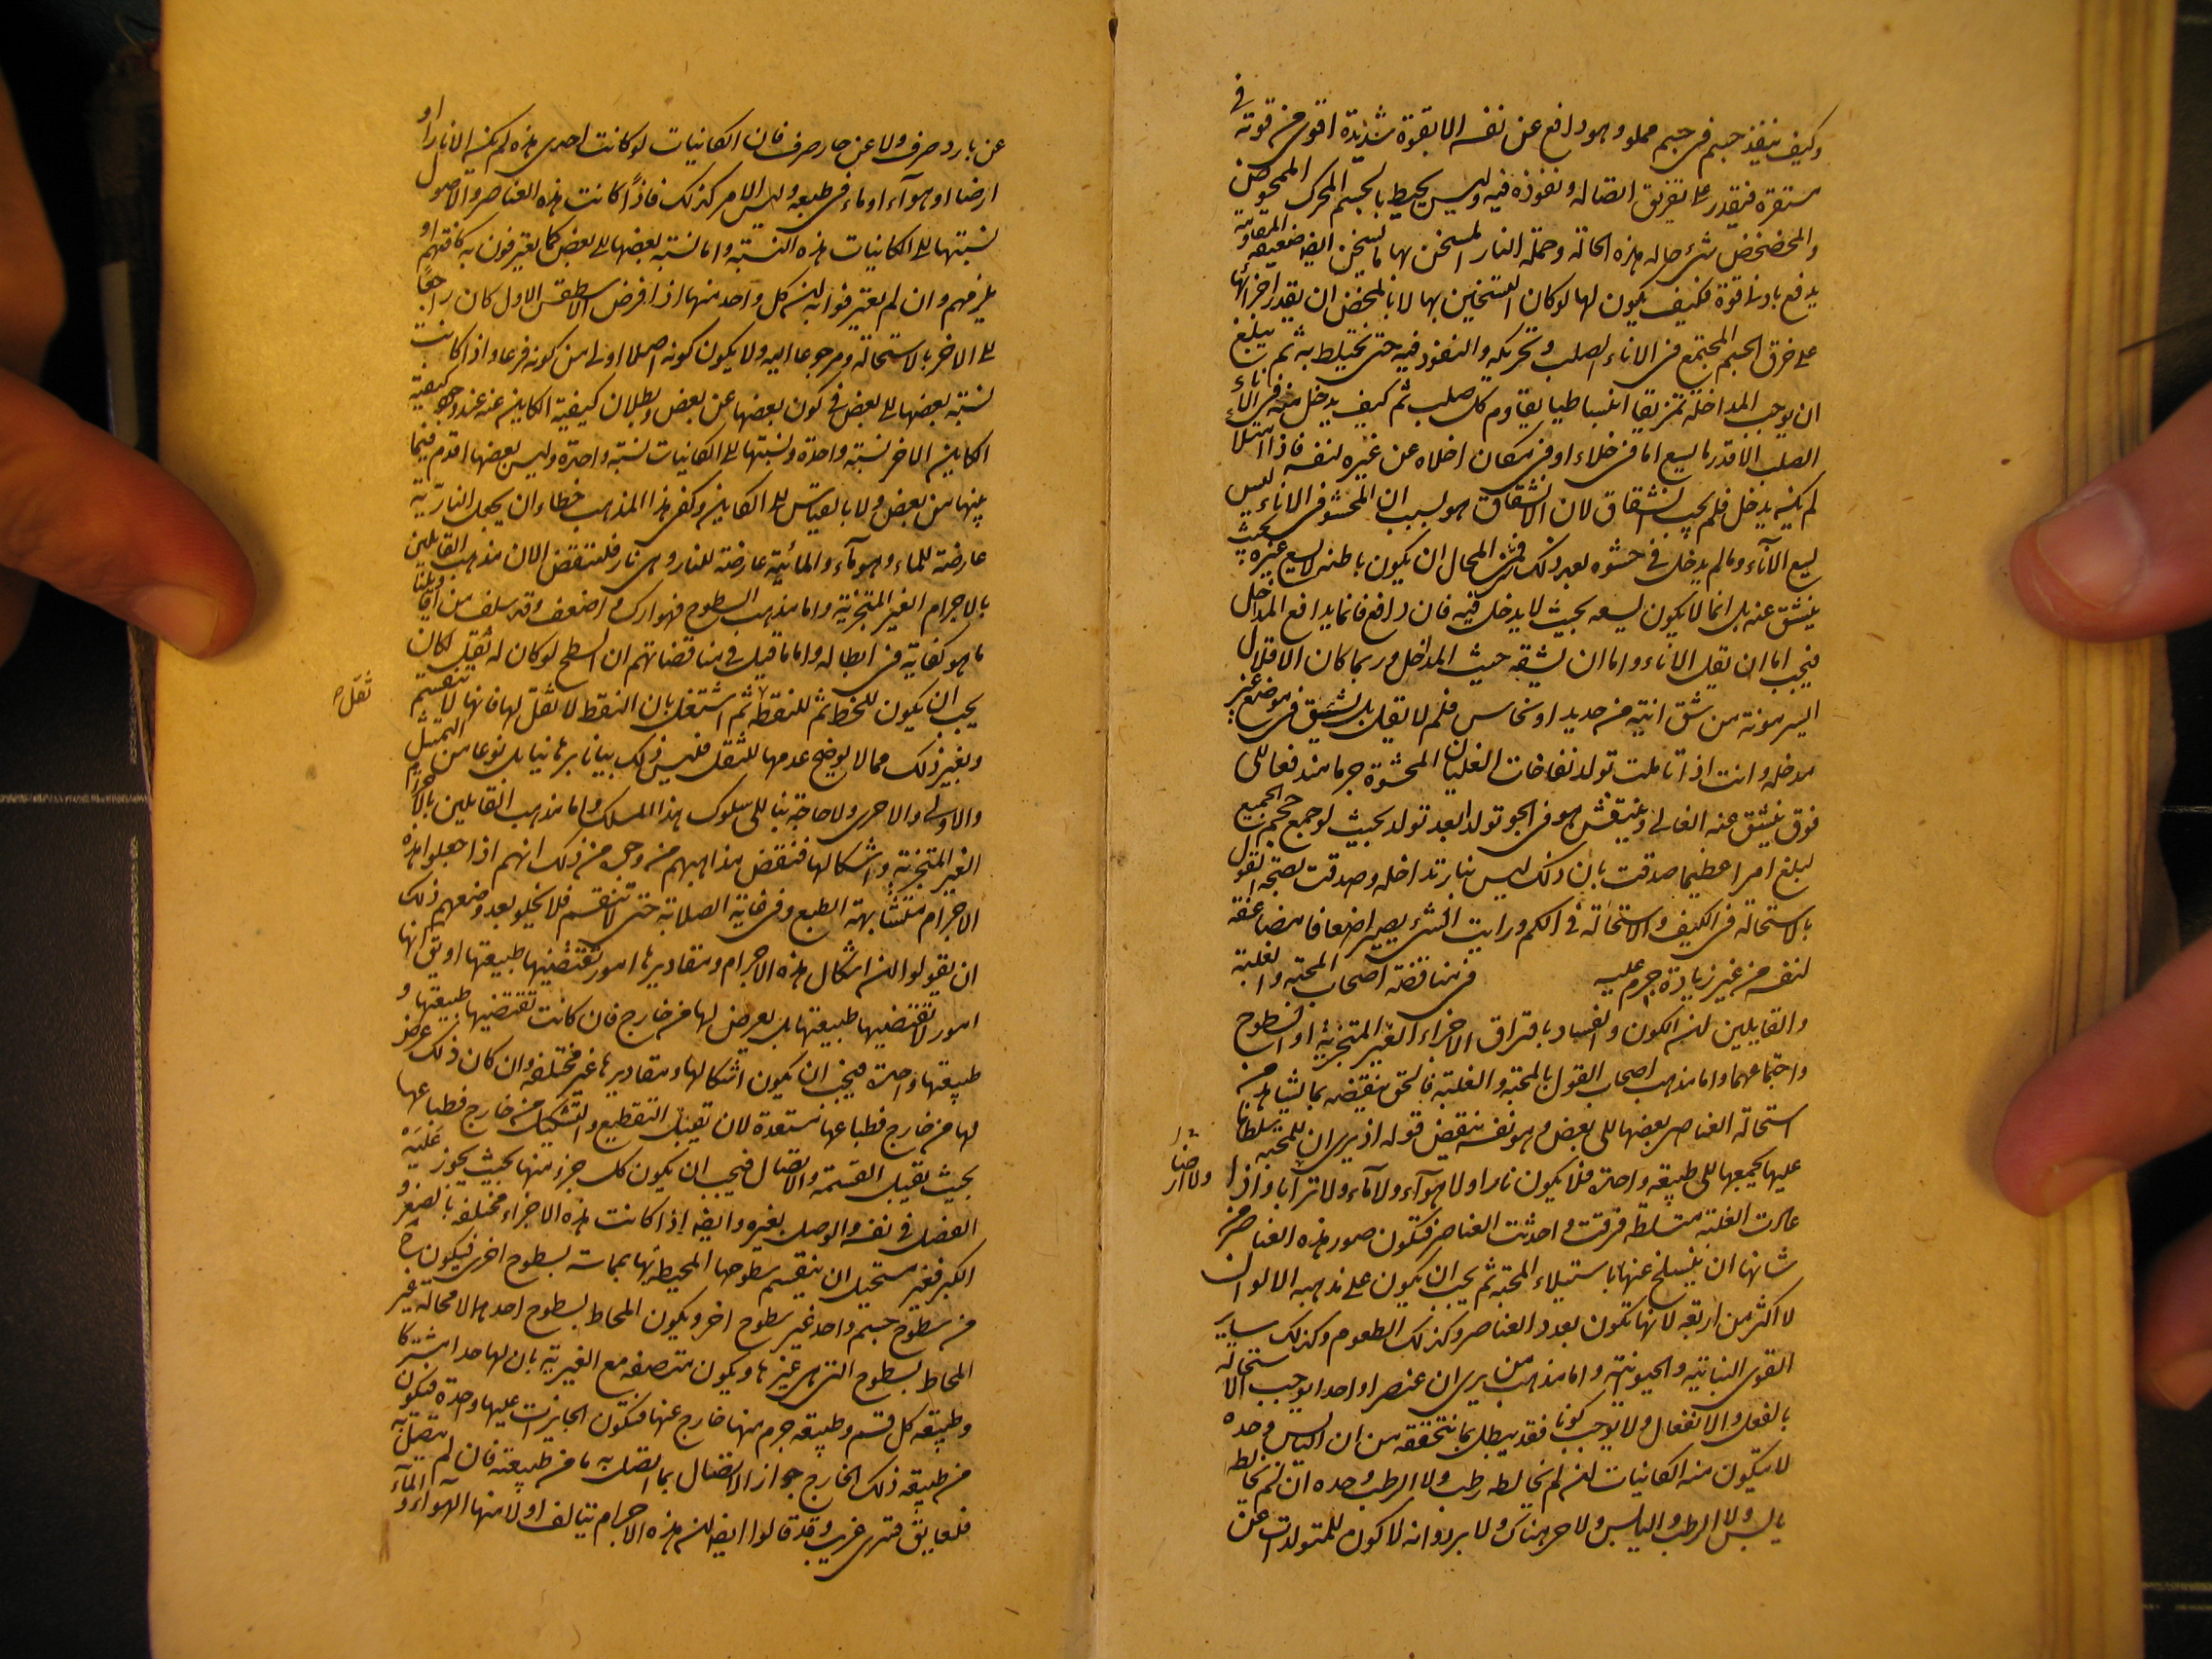 وكيف ينفذ جسم فى جسم مملو وهو دافع عن نفسه الا بقوة شديدة اقوى من قوته فى
مستقره فتقدر على تفريق اتصاله ونفوذه فيه وليس يحيط بالجسم المحرك الممخوض
والمخضخض شىء حاله هذه الحالة وحملة النار المسخن بها ما يسخن ايضا ضعيفة المقاومة
يدفع بادنا قوة فكيف يكون لها لو كان التسخين بها لا بالمخض ان يقدر اجزائها
على خرق الجسم المجتمع من الاناء الصلب وتحريكه والنفوذ فيه حتى تختلط به ثم يبلغ
ان يوجب المداخلة تمزيقا انبساطيا يقاوم كل صلب ثم كيف يدخل منه فى الاناء
الصلب الا قدر ما يسع اما فى خلاء او فى مكان اخلاه عن غيره لنفسه فاذا امتلا
لم يكن يدخل فلم يجب انشقاق لان الانشقاق هو لسبب ان المحشو فى الاناء ليس
يسع الاناء وما لم يدخل فى حشوه بعد ذلك فمن المحال ان يكون باطنه لا يسع غيره بحيث
ينشق عنه بل انما لا يكون يسعه بحيث لا يدخل فيه فان دافع فانما يدافع المداخل
فيجب اما ان تقل الاناء واما ان يشقه حيث المدخل وربما كان الاقلال
ايسر مونة من شق انية من حديد او نحاس فلم لا تقل بل تشق فى موضع غير
مدخله وانت اذا تاملت تولد نفاخات الغليان المحشوة جرما مندفعا الى
فوق ينشق عنه الغالى وينفش هو فى الجو تولدا بعد تولد بحيث لو جمع حجم الجميع
لبلغ امرا عظيما صدقت بان ذلك ليس بنار تداخله وصدقت بصحة القول
بالاستحالة فى الكيف والاستحالة فى الكم ورايت الشىء يصير اضعافا مضاعفة
لنفسه من غير زيادة جرم عليه فى مناقضة اصحاب المحبة والغلبة
والقايلين ان الكون والفساد بافتراق الاجزاء الغير المتجزية او السطوح
واجتماعها واما مذهب اصحاب القول بالمحبة والغلبة فالحق ينقضه بما يشاهد من
استحالة العناصر بعضها الى بعض وهو نفسه ينقض قوله اذ يرى ان للمحبة سلطانا
عليها يجمعها الى طبيعة واحدة فلا يكون نارا ولا هواء ولا ماء ولا ترابا واذا
ولا ارضا
عادت الغلبة متسلطة فرقت واحدثت العناصر فتكون صور هذه العناصر من
شانها ان ينسلخ عنها باستيلاء المحبة ثم يجب ان يكون على مذهبه الالوان
لا اكثر من اربعة لانها تكون بعدد العناصر وكذلك الطعوم وكذلك ساير
القوى النباتية والحيوانية واما مذهب من يرى ان عنصرا واحدا يوجب الاستحالة
بالفعل والانفعال ولا يوجب كونا فقد يبطل بما نتحققه من ان اليابس وحده
لا يتكون منه الكائنات ان لم يخالطه رطب ولا الرطب وحده ان لم يخالطه
يابس ولا الرطب واليابس ولا حر هناك ولا برد وانه لا كون للمتولدات عن
عن بارد صرف ولا عن حار صرف فان الكائنيات لو كانت احدى هذه لم يكن الا نارا او
ارضا او هواء او ماء فى طبعه وليس الامر كذلك فاذا كانت هذه العناصر والاصول
نسبتها الى الكائنيات هذه النسبة واما نسبة بعضها الى بعض كما يعترفون به كافتهم او
يلزمهم وان لم يعترفوا به ان كل واحد منها اذا فرض الاسطقس الاول كان راجعا
الى الاخر بالاستحالة ومرجوعا اليه ولا يكون كونه اصلا اولى من كونه فرعا واذا كانت
نسبة بعضها الى بعض فى كون بعضها عن بعض وبطلان كيفية الكاين عنه عند وجود كيفية
الكاين الاخر نسبة واحدة ونسبتها الى الكائنيات نسبة واحدة وليس بعضها اقدم فيما
بينها من بعض ولا بالقياس الى الكاين وكفى هذا المذهب خطاء ان يجعل النارية
عارضة للماء وهو ماء والمائية عارضة للنار وهى نار فلننقض الان مذهب القايلين
بالاجرام الغير المتجزية واما مذهب السطوح فهو ارك واضعف وقد سلف من اقاويلنا
ما هو كفاية فى ابطاله واما ما قيل فى مناقضاتهم ان السطح لو كان له ثقل لكان
يجب ان يكون للخط ثم للنقطة ثم اشتغل بان النقط لا ثقل لها فانها لا تنقسم
ثقل
وبغير ذلك مما لا يوضح عدمها للثقل فليس ذلك بيانا برهانيا بل نوعا من التمثيل
والاولى والاحرى ولا حاجة بنا الى سلوك هذا المسلك واما مذهب القايلين بالاجرام
الغير المتجزية واشكالها فننقض مذاهبهم من وجوه من ذلك انهم اذا جعلوا هذه
الاجرام متشابهة الطبع وفى غاية الصلابة حتى لا تنقسم فلا يخلو بعد وضعهم ذلك
ان يقولوا ان اشكال هذه الاجرام ومقاديرها امور تقتضيها طبيعتها او يق انها
امور لا تقتضيها طبيعتها بل يعرض لها من خارج فان كانت تقتضيها طبيعتها و
طبيعتها واحدة فيجب ان يكون اشكالها ومقاديرها غير مختلفة وان كان ذلك عرض
لها من خارج فطباعها مستعدة لان تقبل التقطيع والتشكيل من خارج فطباعها
بحيث تقبل القسمة والاتصال فيجب ان يكون كل جزء منها بحيث يجوز عليه
الفصل فى نفسه والوصل بغيره وايضا اذا كانت هذه الاجزاء مختلفة بالصغر و
الكبر فغير مستحيل ان ينقسم سطوحها المحيطة بها بمماسة سطوح اخرى فيكون ح
من سطوح جسم واحد غير سطوح اخر ويكون المحاط بسطوح احدهما لا محالة غير
المحاط بسطوح التى هى غيرها ويكون متصفة مع الغيرية بان لها حدا مشتركا
وطبيعة كل قسم وطبيعة جرم منها خارج عنها فتكون الجايزات عليها واحدة فيكون
من طبيعة ذلك الخارج جواز الاتصال بما اتصل به ما من طبيعته فان لم يتصل به
فلعايق قسرى غريب وقد قالوا ايضا ان هذه الاجرام يتالف اولا منها الهواء والماء